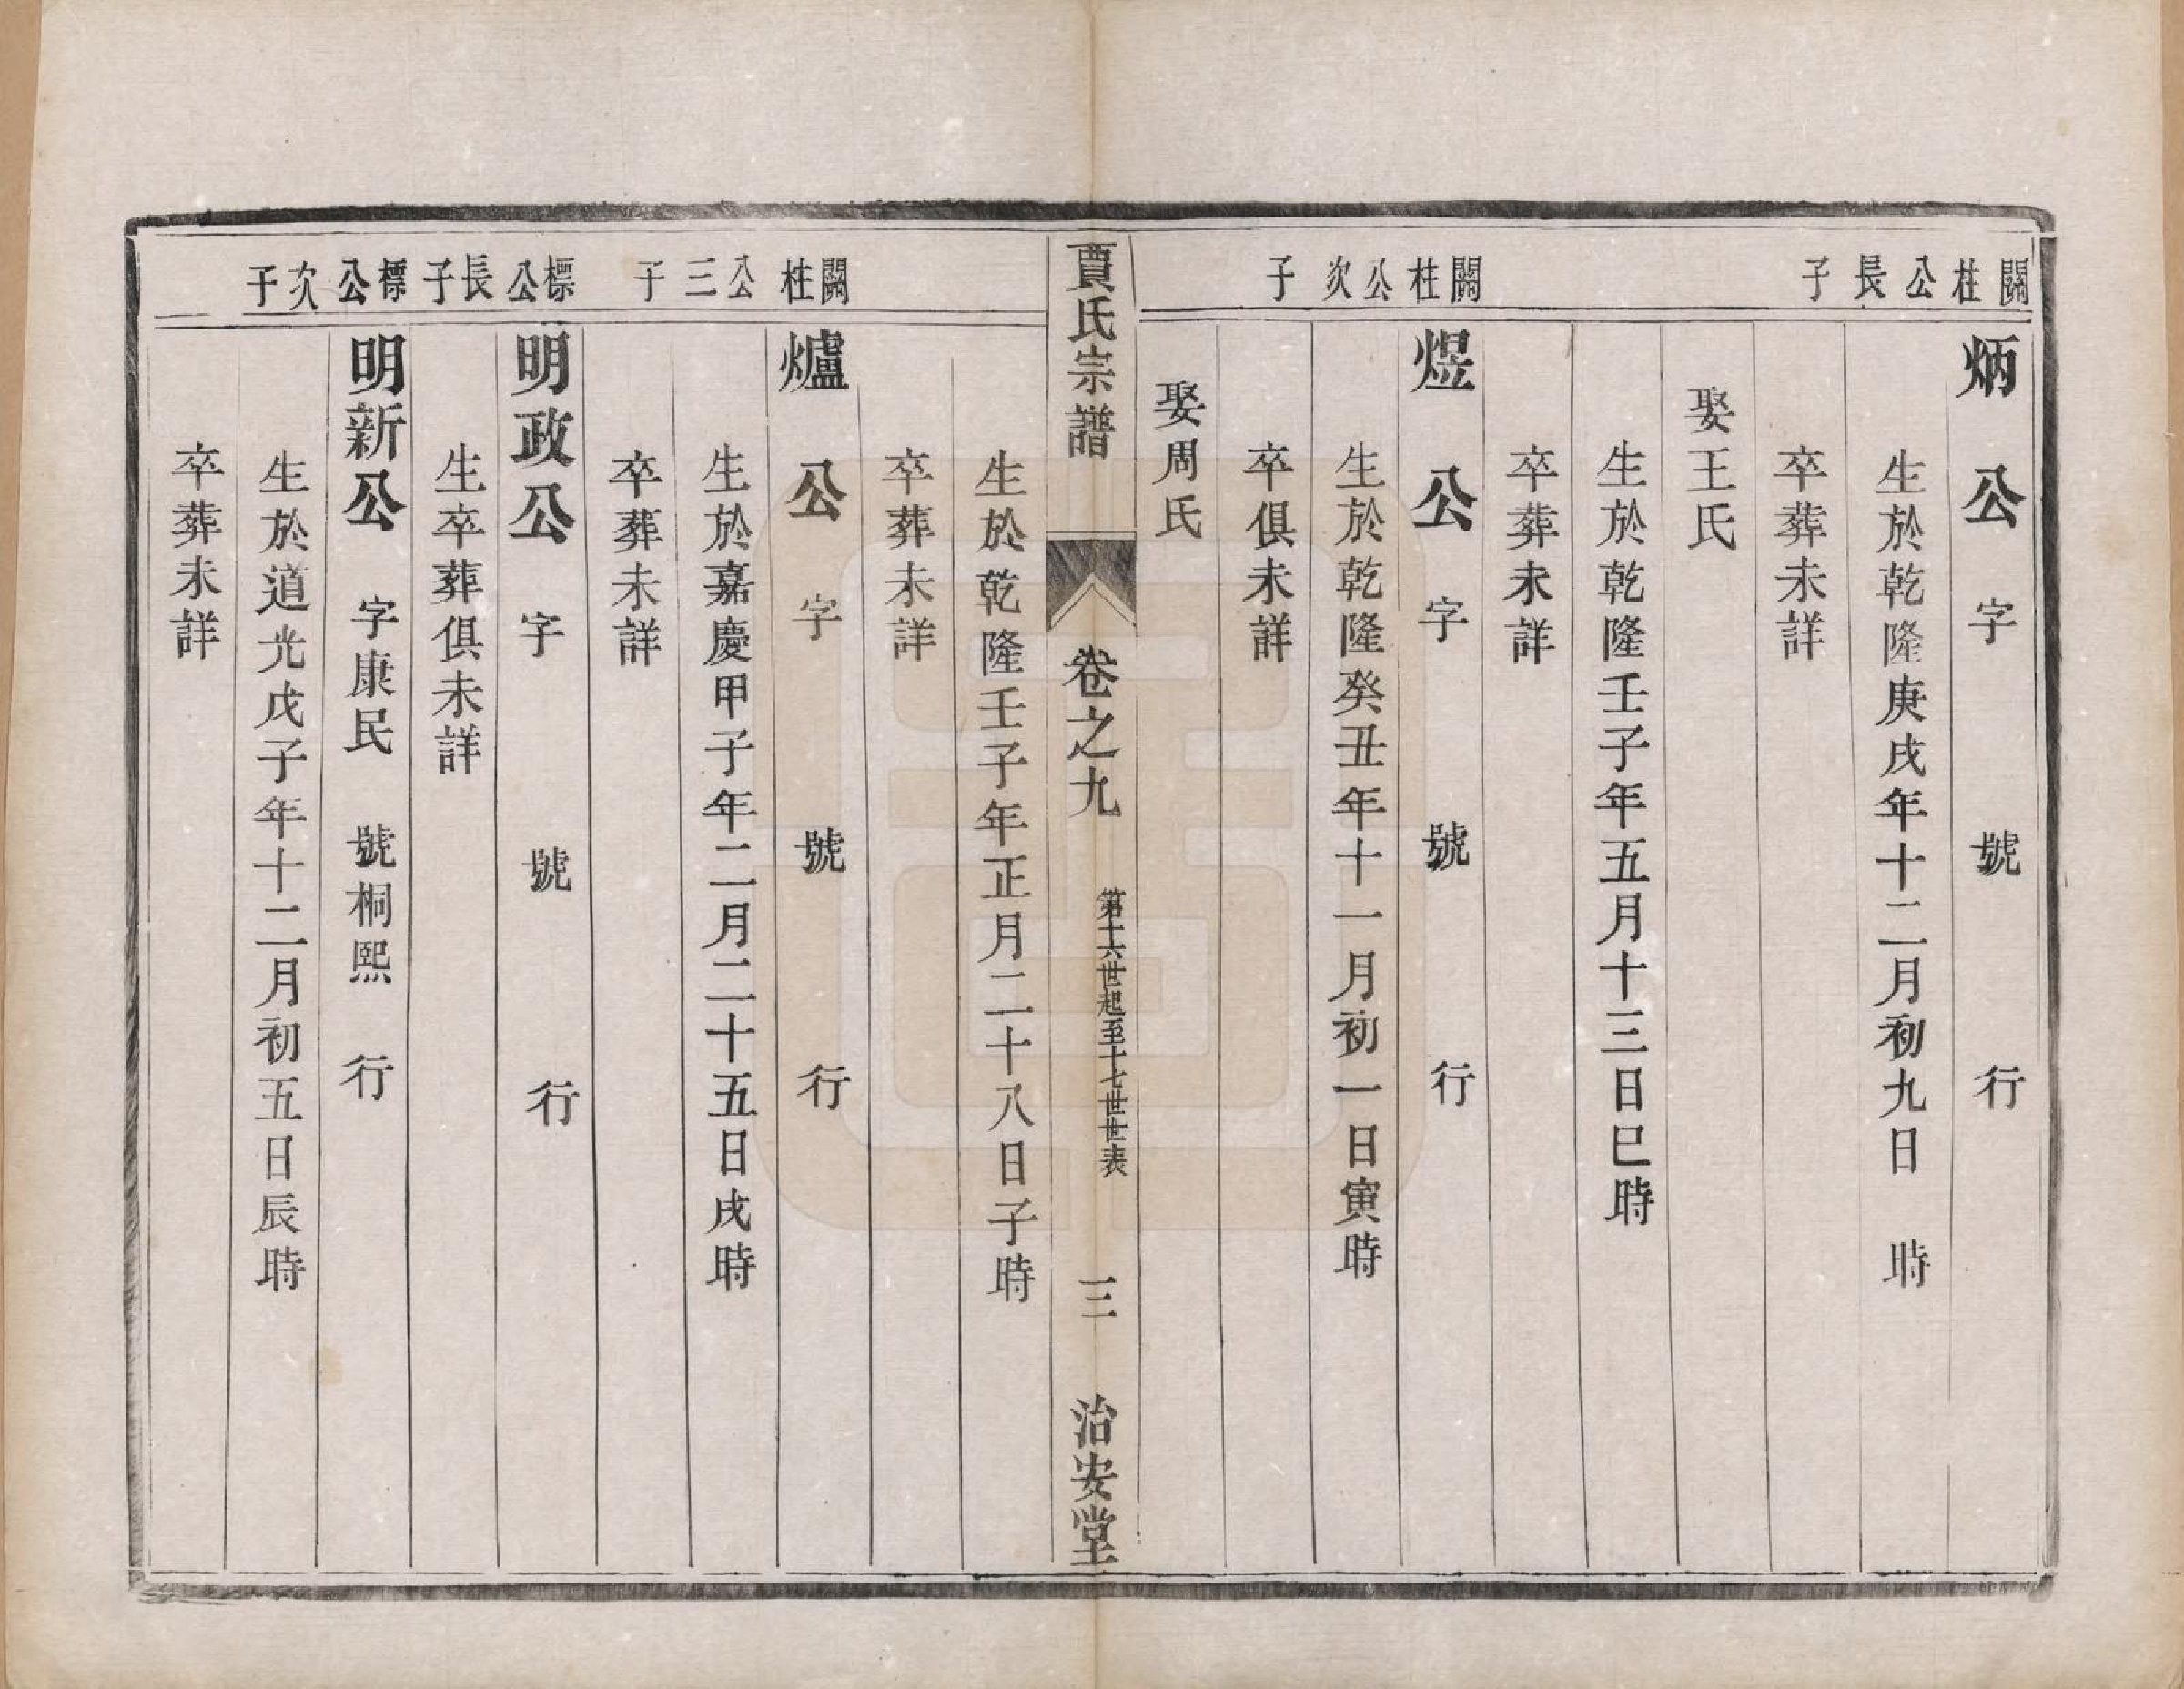 關柱公長子
炳公字 號 行
生於乾隆庚戌年十二月初九日 時
卒葬未詳
娶王氏
生於乾隆壬子年五月十三日巳時
卒葬未詳
關柱公次子
煜公字 號 行
生於乾隆癸丑年十一月初一日寅時
卒俱未詳
娶周氏
賈氏宗譜 卷之九 第十六世起至十七世世表 三 治安堂
生於乾隆壬子年正月二十八日子時
卒葬未詳
關柱公三子
爐公字 號 行
生於嘉慶甲子年二月二十五日戌時
卒葬未詳
標公長子
明政公字 號 行
生卒葬俱未詳
標公次子
明新公 字康民 號桐熙 行
生於道光戊子年十二月初五日辰時
卒葬未詳